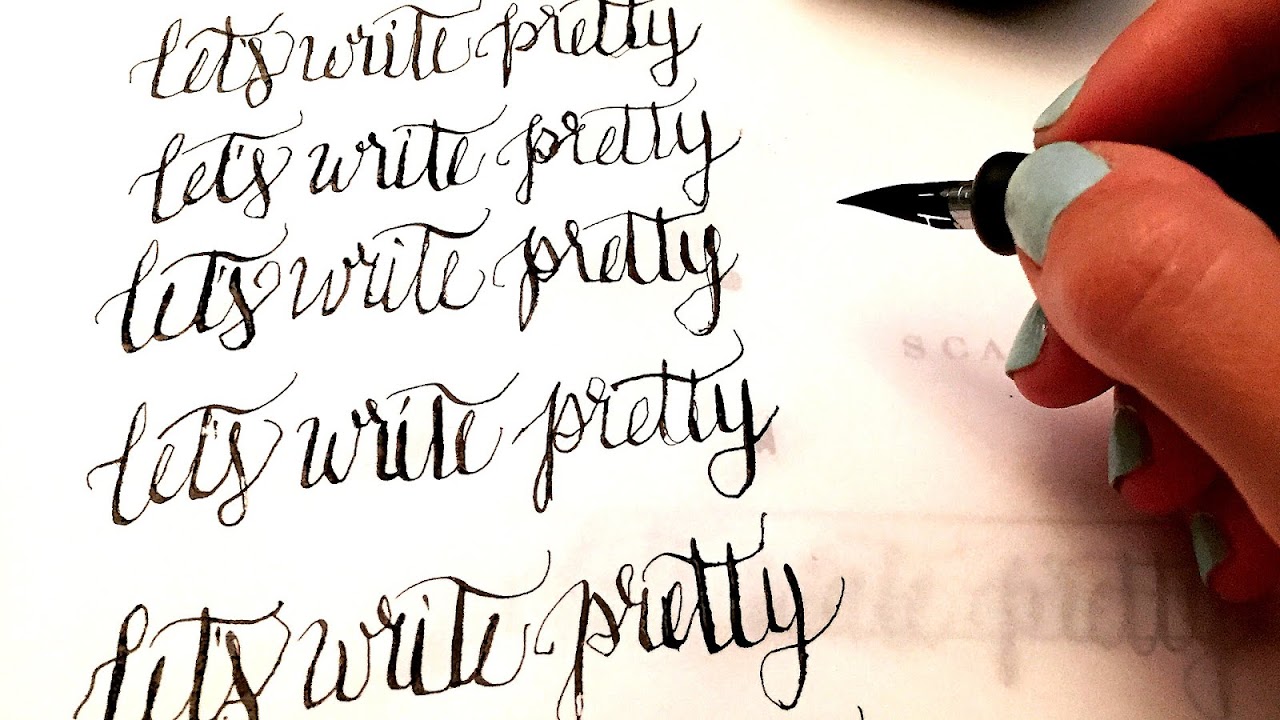 let's write pretty
let's write pretty
let's write pretty
let's write pretty
let's write pretty